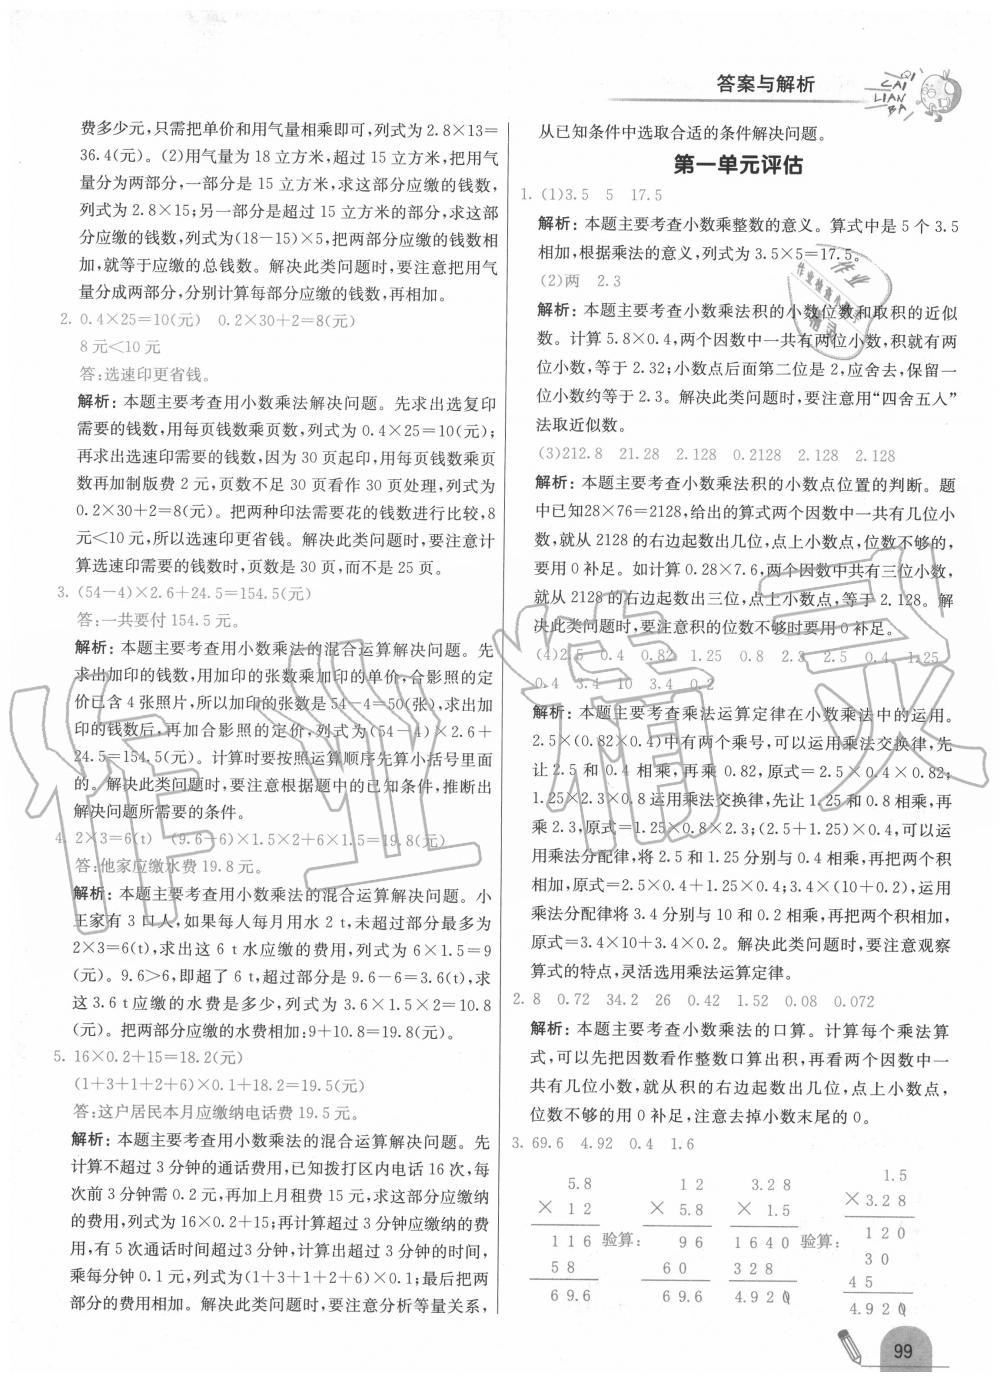 答案与解析
QI
CAI
LIAN
BA
费多少元,只需把单价和用气量相乘即可,列式为 2.8×13=
36.4(元)。(2)用气量为 18 立方米,超过 15 立方米,把用气
量分为两部分,一部分是 15 立方米,求这部分应缴的钱数,
列式为 2.8×15;另一部分是超过 15 立方米的部分,求这部
分应缴的钱数,列式为(18-15)×5,把两部分应缴的钱数相
加,就等于应缴的总钱数。解决此类问题时,要注意把用气
量分成两部分,分别计算每部分应缴的钱数,再相加。
2. 0.4×25=10(元) 0.2×30+2=8(元)
8 元<10 元
答:选速印更省钱。
解析:本题主要考查用小数乘法解决问题。先求出选复印
需要的钱数,用每页钱数乘页数,列式为 0.4×25=10(元);
再求出选速印需要的钱数,因为 30 页起印,用每页钱数乘页
数再加制版费 2 元,页数不足 30 页看作 30 页处理,列式为
0.2×30+2=8(元)。把两种印法需要花的钱数进行比较,8
元<10 元,所以选速印更省钱。解决此类问题时,要注意计
算选速印需要的钱数时,页数是 30 页,而不是 25 页。
3. (54-4)×2.6+24.5=154.5(元)
答:一共要付 154.5 元。
解析:本题主要考查用小数乘法的混合运算解决问题。先
求出加印的钱数,用加印的张数乘加印的单价,合影照的定
价已含 4 张照片,所以加印的张数是 54-4=50(张),求出加
印的钱数后,再加合影照的定价,列式为(54-4)×2.6+
24.5=154.5(元)。计算时要按照运算顺序先算小括号里面
的。解决此类问题时,要注意根据题中的已知条件,推断出
解决问题所需要的条件。
4. 2×3=6(t) (9.6-6)×1.5×2+6×1.5=19.8(元)
答:他家应缴水费 19.8 元。
解析:本题主要考查用小数乘法的混合运算解决问题。小
王家有 3 口人,如果每人每月用水 2 t,未超过部分最多为
2×3=6(t),求出这 6 t 水应缴的费用,列式为 6×1.5=9
(元)。9.6>6,即超了 6 t,超过部分是 9.6-6=3.6(t),求
这 3.6 t 应缴的水费是多少,列式为 3.6×1.5×2=10.8
(元)。把两部分应缴的水费相加:9+10.8=19.8(元)。
5. 16×0.2+15=18.2(元)
(1+3+1+2+6)×0.1+18.2=19.5(元)
答:这户居民本月应缴纳电话费 19.5 元。
解析:本题主要考查用小数乘法的混合运算解决问题。先
计算不超过 3 分钟的通话费用,已知拨打区内电话 16 次,每
次前 3 分钟需 0.2 元,再加上月租费 15 元,求出这些应缴纳
的费用,列式为 16×0.2+15;再计算超过 3 分钟应缴纳的费
用,有 5 次通话时间超过3分钟,计算出超过 3 分钟的时间,
乘每分钟 0.1 元,列式为(1+3+1+2+6)×0.1;最后把两
部分的费用相加。解决此类问题时,要注意分析等量关系,
从已知条件中选取合适的条件解决问题。
第一单元评估
1. (1)3.5 5 17.5
解析:本题主要考查小数乘整数的意义。算式中是 5 个 3.5
相加,根据乘法的意义,列式为 3.5×5=17.5。
(2)两 2.3
解析:本题主要考查小数乘法积的小数位数和取积的近似
数。计算 5.8×0.4,两个因数中一共有两位小数,积就有两
位小数,等于 2.32;小数点后面第二位是 2,应舍去,保留一
位小数约等于 2.3。解决此类问题时,要注意用“四舍五入”
法取近似数。
(3)212.8 21.28 2.128 0.2128 2.128 2.128
解析:本题主要考查小数乘法积的小数点位置的判断。题
中已知28×76=2128,给出的算式两个因数中一共有几位小
数,就从 2128 的右边起数出几位,点上小数点,位数不够的,
要用 0 补足。如计算 0.28×7.6,两个因数中共有三位小数,
就从 2128 的右边起数出三位,点上小数点,等于 2.128。解
决此类问题时,要注意积的位数不够时要用 0 补足。
(4)2.5 0.4 0.82 1.25 0.8 2.3 2.5 0.4 1.25
0.4 3.4 10 3.4 0.2
解析:本题主要考查乘法运算定律在小数乘法中的运用。
2.5×(0.82×0.4)中有两个乘号,可以运用乘法交换律,先
让 2.5 和 0.4 相乘,再乘 0.82,原式=2.5×0.4×0.82;
1.25×2.3×0.8 运用乘法交换律,先让 1.25 和 0.8 相乘,再
乘 2.3,原式=1.25×0.8×2.3;(2.5+1.25)×0.4,可以运
用乘法分配律,将 2.5 和 1.25 分别与 0.4 相乘,再把两个积
相加,原式=2.5×0.4+1.25×0.4;3.4×(10+0.2),运用
乘法分配律将 3.4 分别与 10 和 0.2 相乘,再把两个积相加,
原式=3.4×10+3.4×0.2。解决此类问题时,要注意观察
算式的特点,灵活选用乘法运算定律。
2. 8 0.72 34.2 26 0.42 1.52 0.08 0.072
解析:本题主要考查小数乘法的口算。计算每个乘法算
式,可以先把因数看作整数口算出积,再看两个因数中一
共有几位小数,就从积的右边起数出几位,点上小数点,
位数不够的用 0 补足,注意去掉小数末尾的 0。
3. 69.6 4.92 0.4 1.6
5.8 1 2 3.2 8 1.5
× 1 2 × 5.8 × 1.5 × 3.2 8
1 1 6 验算: 9 6 1 6 4 0 验算: 1 2 0
5 8 6 0 3 2 8 3 0
6 9.6 6 9.6 4.9 2 0 4 5
4.9 2 0
99
作业精灵